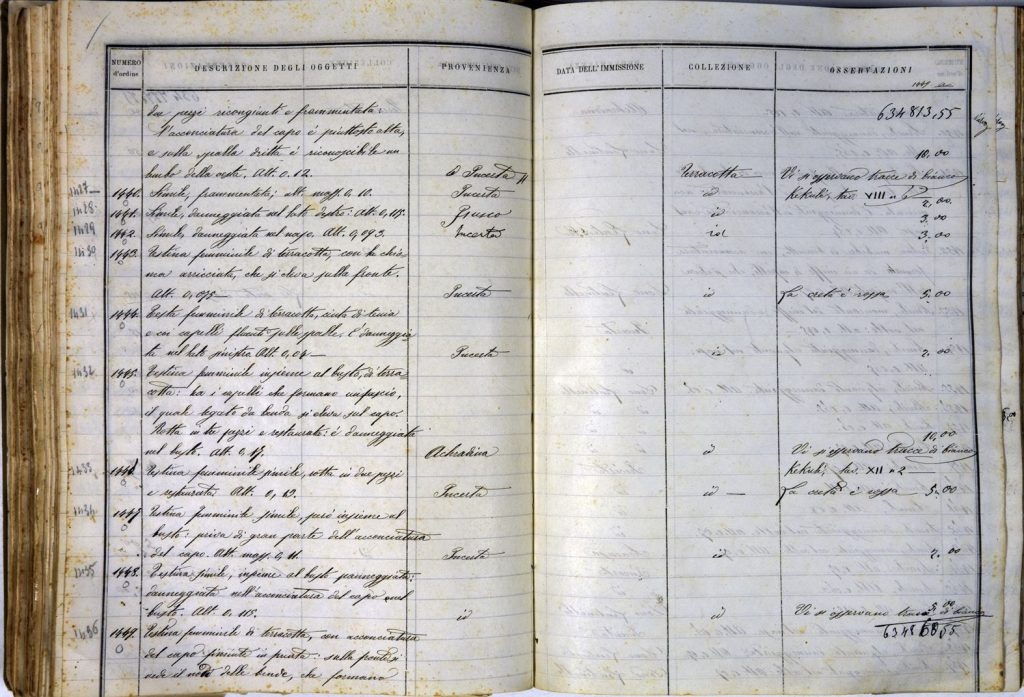 NUMERO d'ordine
DESCRIZIONE DEGLI OGGETTI
PROVENIENZA
DATA DELL'IMMISSIONE
COLLEZIONE
OSSERVAZIONI
634813,55
due pezzi ricongiunti e frammentata:
L'acconciatura del capo è piuttosto alta,
e sulla spalla dritta è riconoscibile un
10,00
lembo della veste. Alt. 0.12. Incerta Terracotta Vi si osservano tracce di bianco
1427 1440. Simile, frammentata; alt. mass. 0.10. Incerta id Kekulé, tav. VIII n.
2,00
1428 1441. Simile, danneggiata nel lato destro. Alt. 0,115. Grusco id 3,00
1429 1442. Simile, danneggiata nel naso. Alt. 0,093. Incerta id 3,00
1430 1443. Testina femminile di terracotta, con la chio
ma arricciata, che si eleva sulla fronte.
Alt. 0,075 Incerta id La creta è rossa 5.00
1431 1444. Testa femminile di terracotta, cinta di tenia
e coi capelli fluenti sulle spalle. È danneggia
ta nel lato sinistro. Alt. 0,04 Incerta id 2.00
1432 1445. Testina femminile insieme al busto, di terra
cotta: ha i capelli che formano un fascio,
il quale legato da benda si eleva sul capo.
Rotta in tre pezzi e restaurata: è danneggiata
10,00
nel busto. Alt. 0,17. Achradina id Vi si osservano tracce di bianco
1433 1446. Testina femminile simile, rotta in due pezzi Kekulé, tav. XII n 2
e restaurata. Alt. 0,13. Incerta id La creta è rossa 5.00
1434 1447. Testina femminile simile, però insieme al
busto: priva di gran parte dell'acconciatura
del capo. Alt. mass. 0,11. Incerta id 2.00
1435 1448. Testina simile, insieme al busto panneggiato:
danneggiata nell'acconciatura del capo e nel
busto. Alt. 0.115. id id Vi si osservano tracce di bianco
1436 1449. Testina femminile di terracotta, con acconciatura
del capo finiente in punta: sulla fronte si
vede il nodo delle bende, che formano